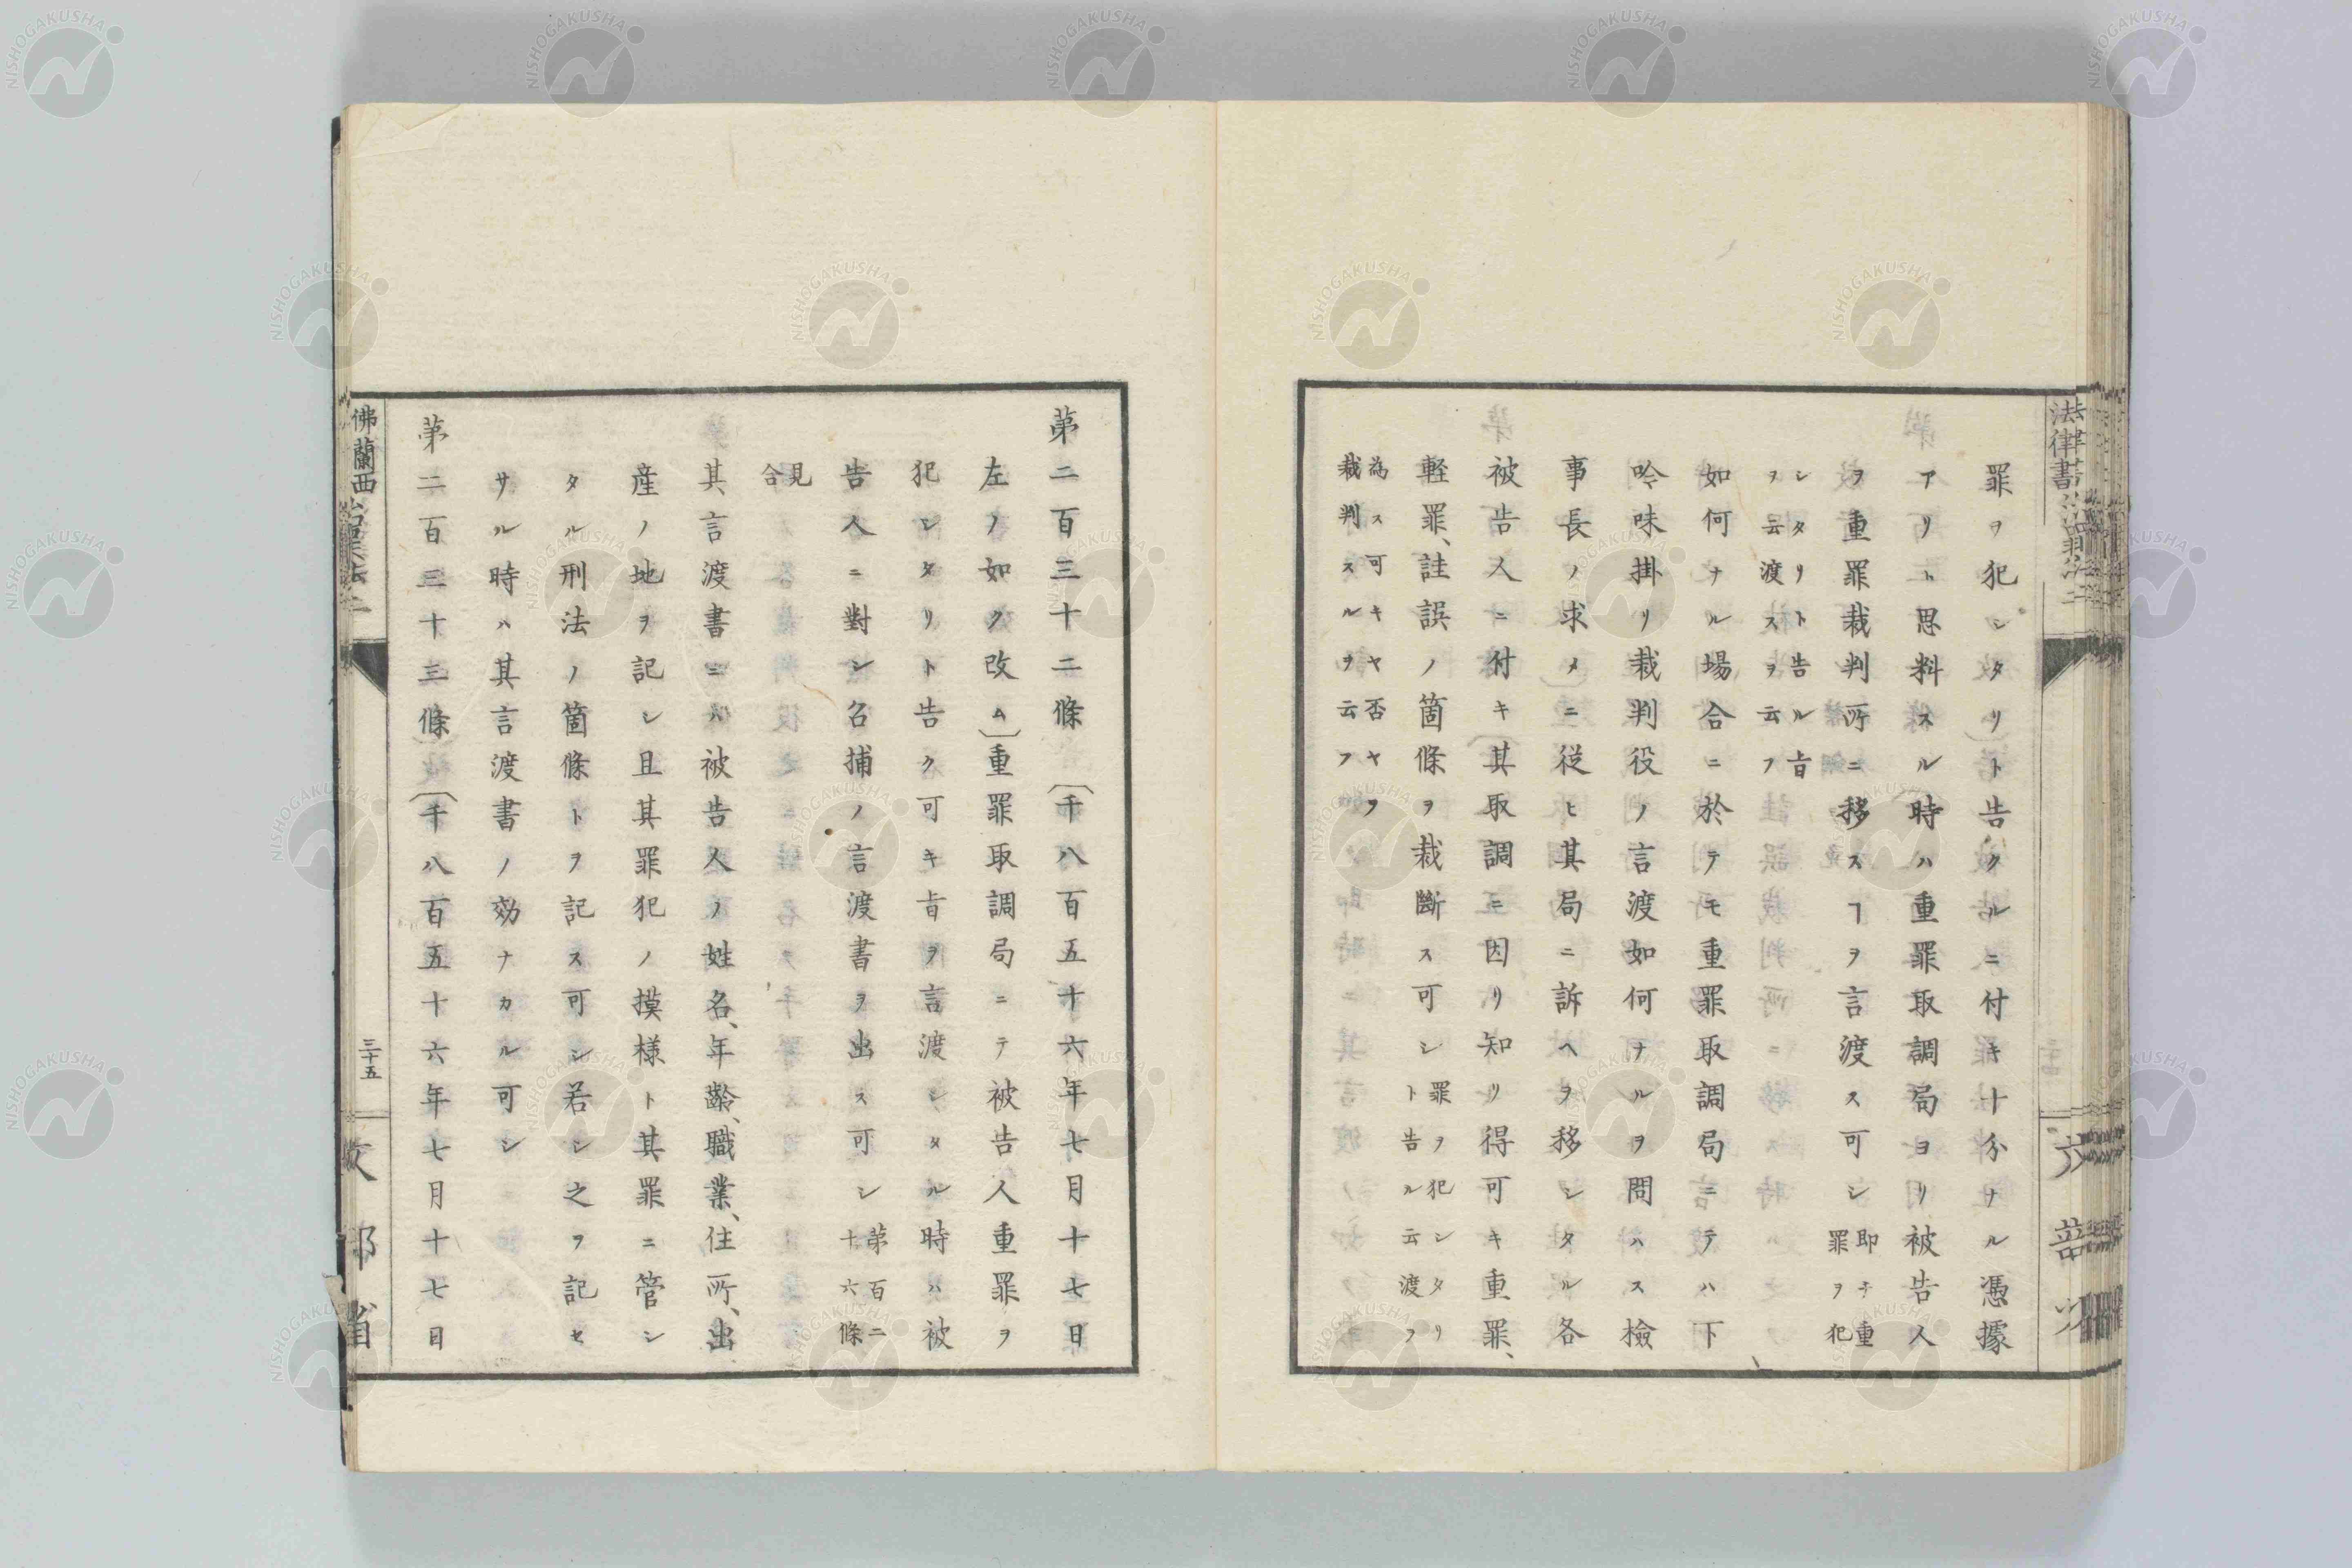 罪ヲ犯シタリト告クルニ付キ十分ナル憑據
アリト思料スル時ハ重罪取調局ヨリ被告人
ヲ重罪裁判所ニ移スヿヲ言渡ス可シ即チ重罪ヲ犯
シタリト告ル旨ヲ云渡スヲ云フ
如何ナル場合ニ於テモ重罪取調局ニテハ下
吟味掛リ裁判役ノ言渡如何ナルヲ問ハス檢
事長ノ求メニ従ヒ其局ニ訴ヘヲ移シタル各
被告人ニ付キ其取調ニ因リ知リ得可キ重罪、
軽罪、註誤ノ箇條ヲ裁斷ス可シ罪ヲ犯シタリト告ル云渡ヲ
為ス可キヤ否ヤヲ裁判スルヲ云フ
第二百三十二條〔千八百五十六年七月十七日
左ノ如ク改ム〕重罪取調局ニテ被告人重罪ヲ
犯シタリト告ク可キ旨ヲ言渡シタル時ハ被
告人ニ對シ召捕ノ言渡書ヲ出ス可シ第百二十六條
見合
其言渡書ニハ被告人ノ姓名、年齢、職業、住所、出
産ノ地ヲ記シ且其罪犯ノ摸様ト其罪ニ管シ
タル刑法ノ箇條トヲ記ス可シ若シ之ヲ記セ
サル時ハ其言渡書ノ効ナカル可シ
第二百三十三條〔千八百五十六年七月十七日
佛蘭西
三十五
NISHOGAKUSHA